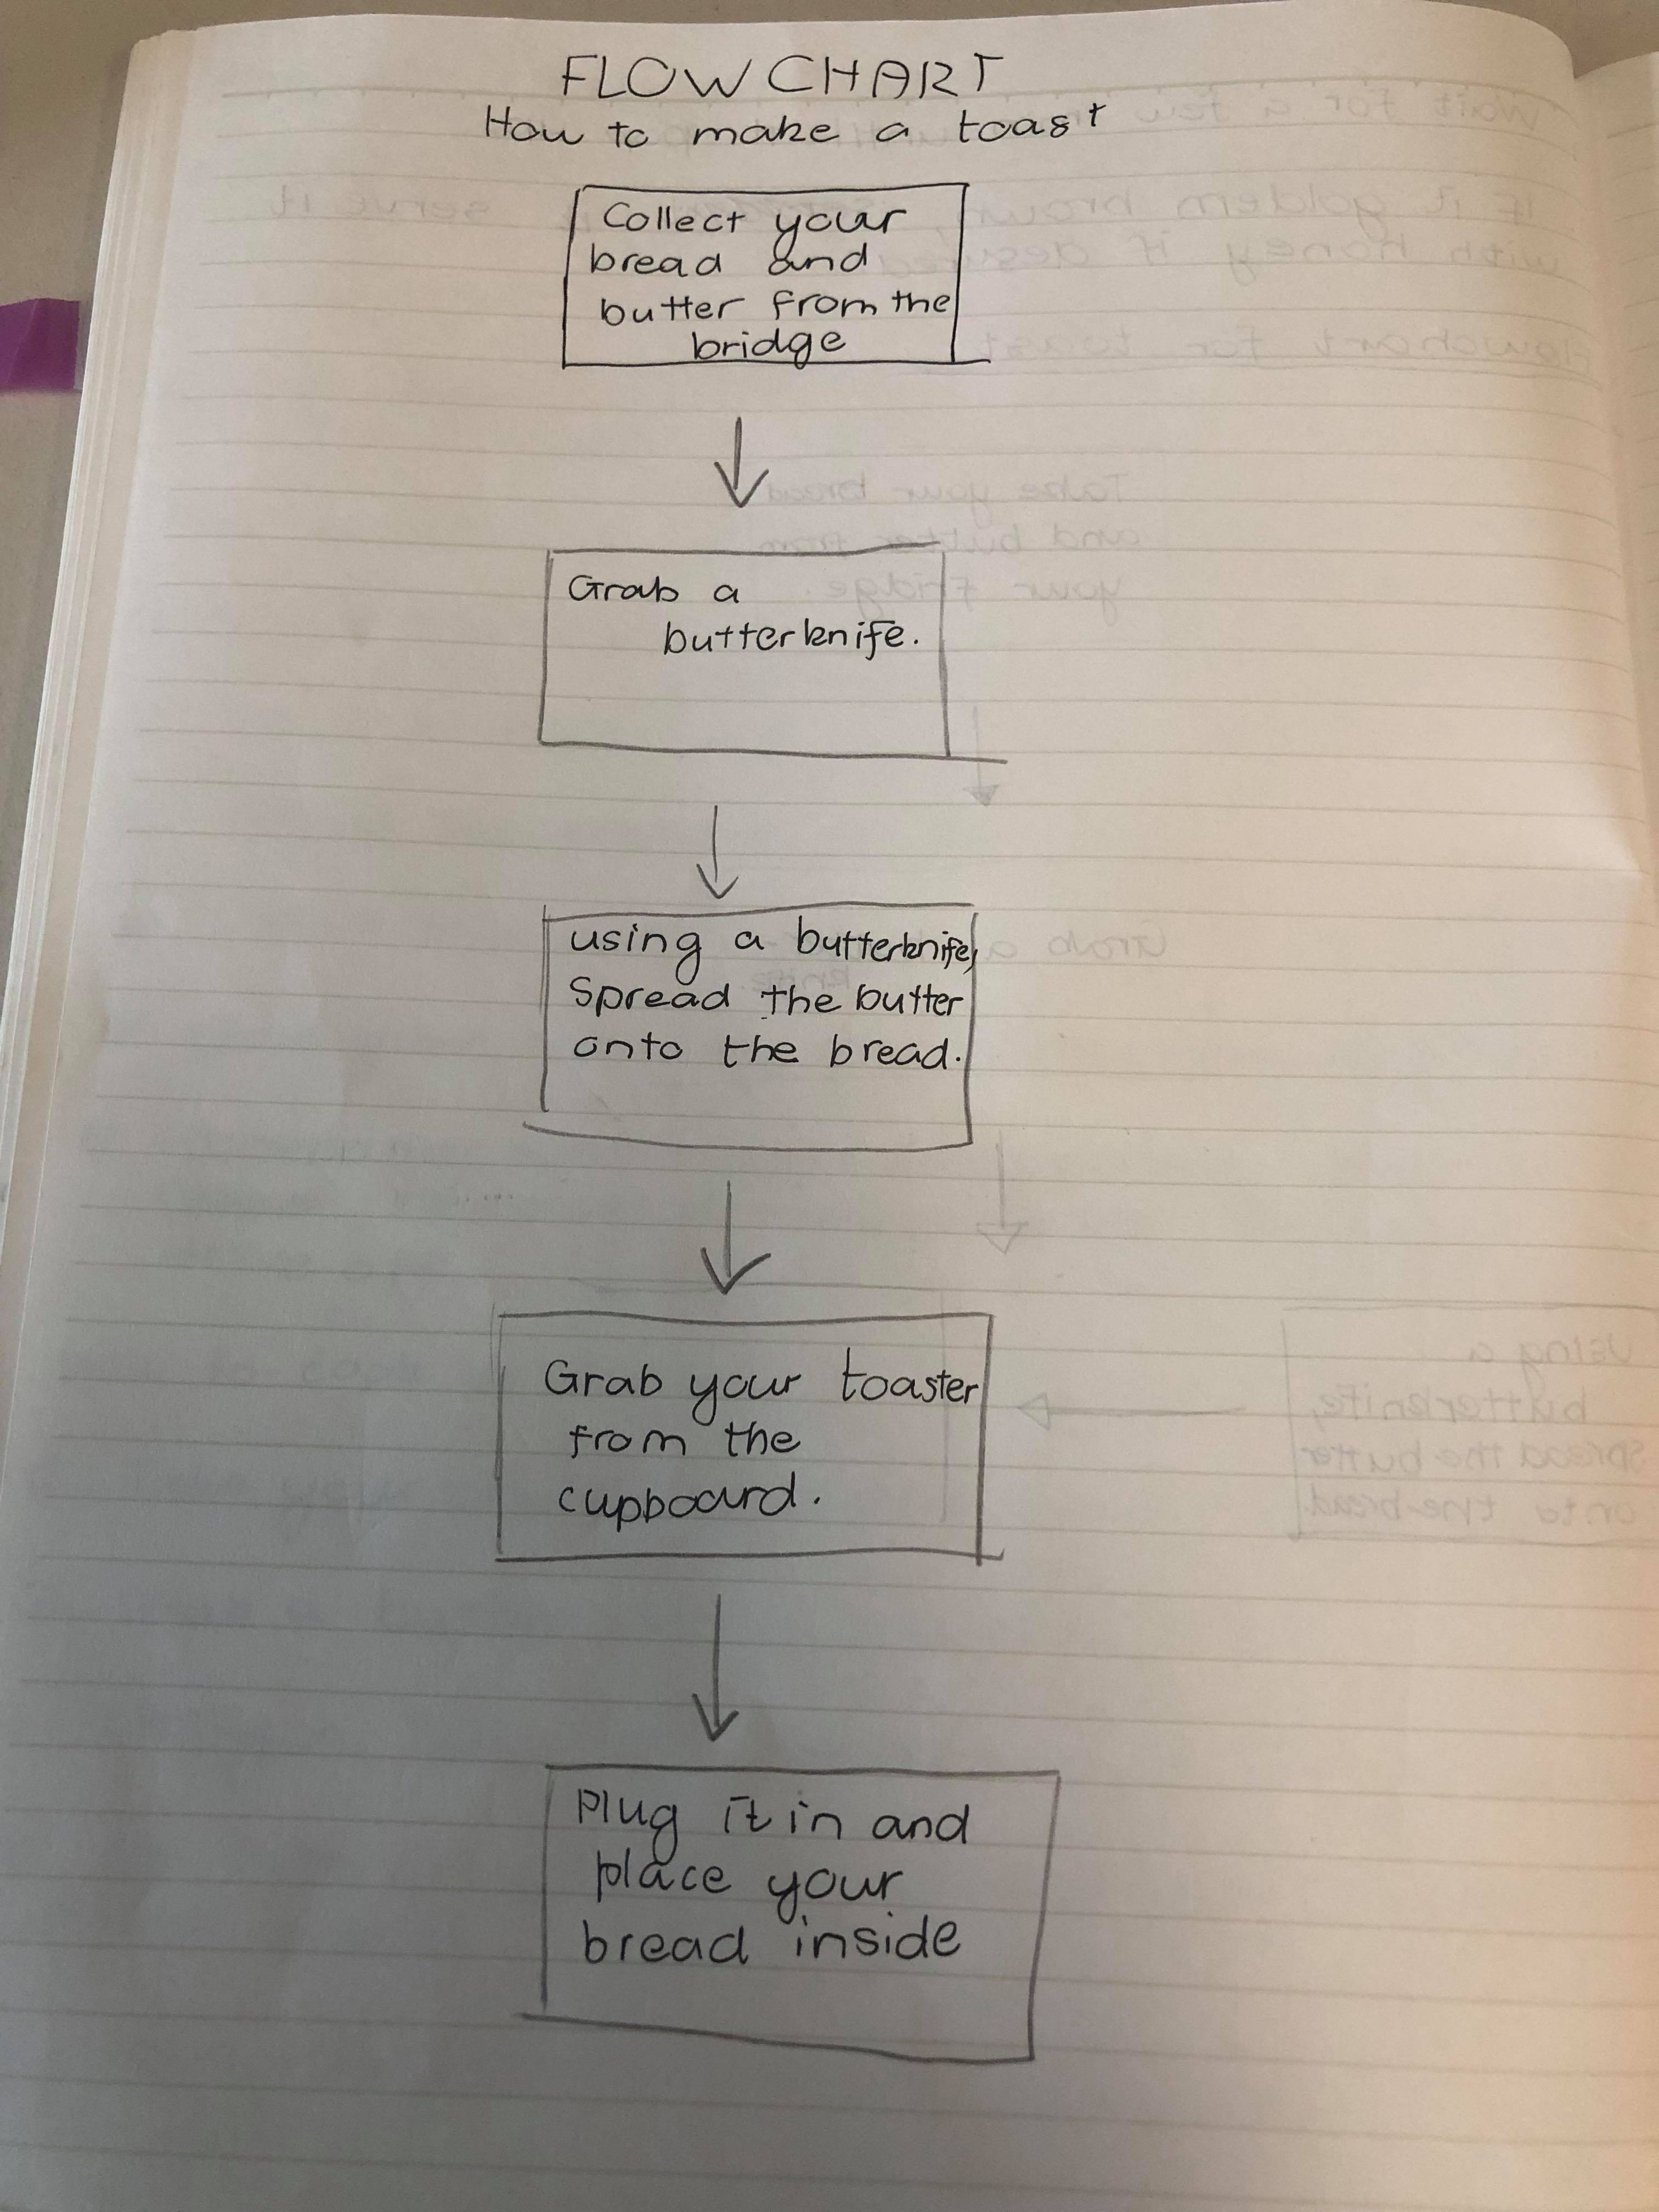 FLOW CHART
How to make a toast
Collect your
bread and
butter from the
bridge
Grab a
butterknife.
using a butterknife,
spread the butter
onto the bread.
Grab your toaster
from the
cupboard.
Plug it in and
place your
bread inside